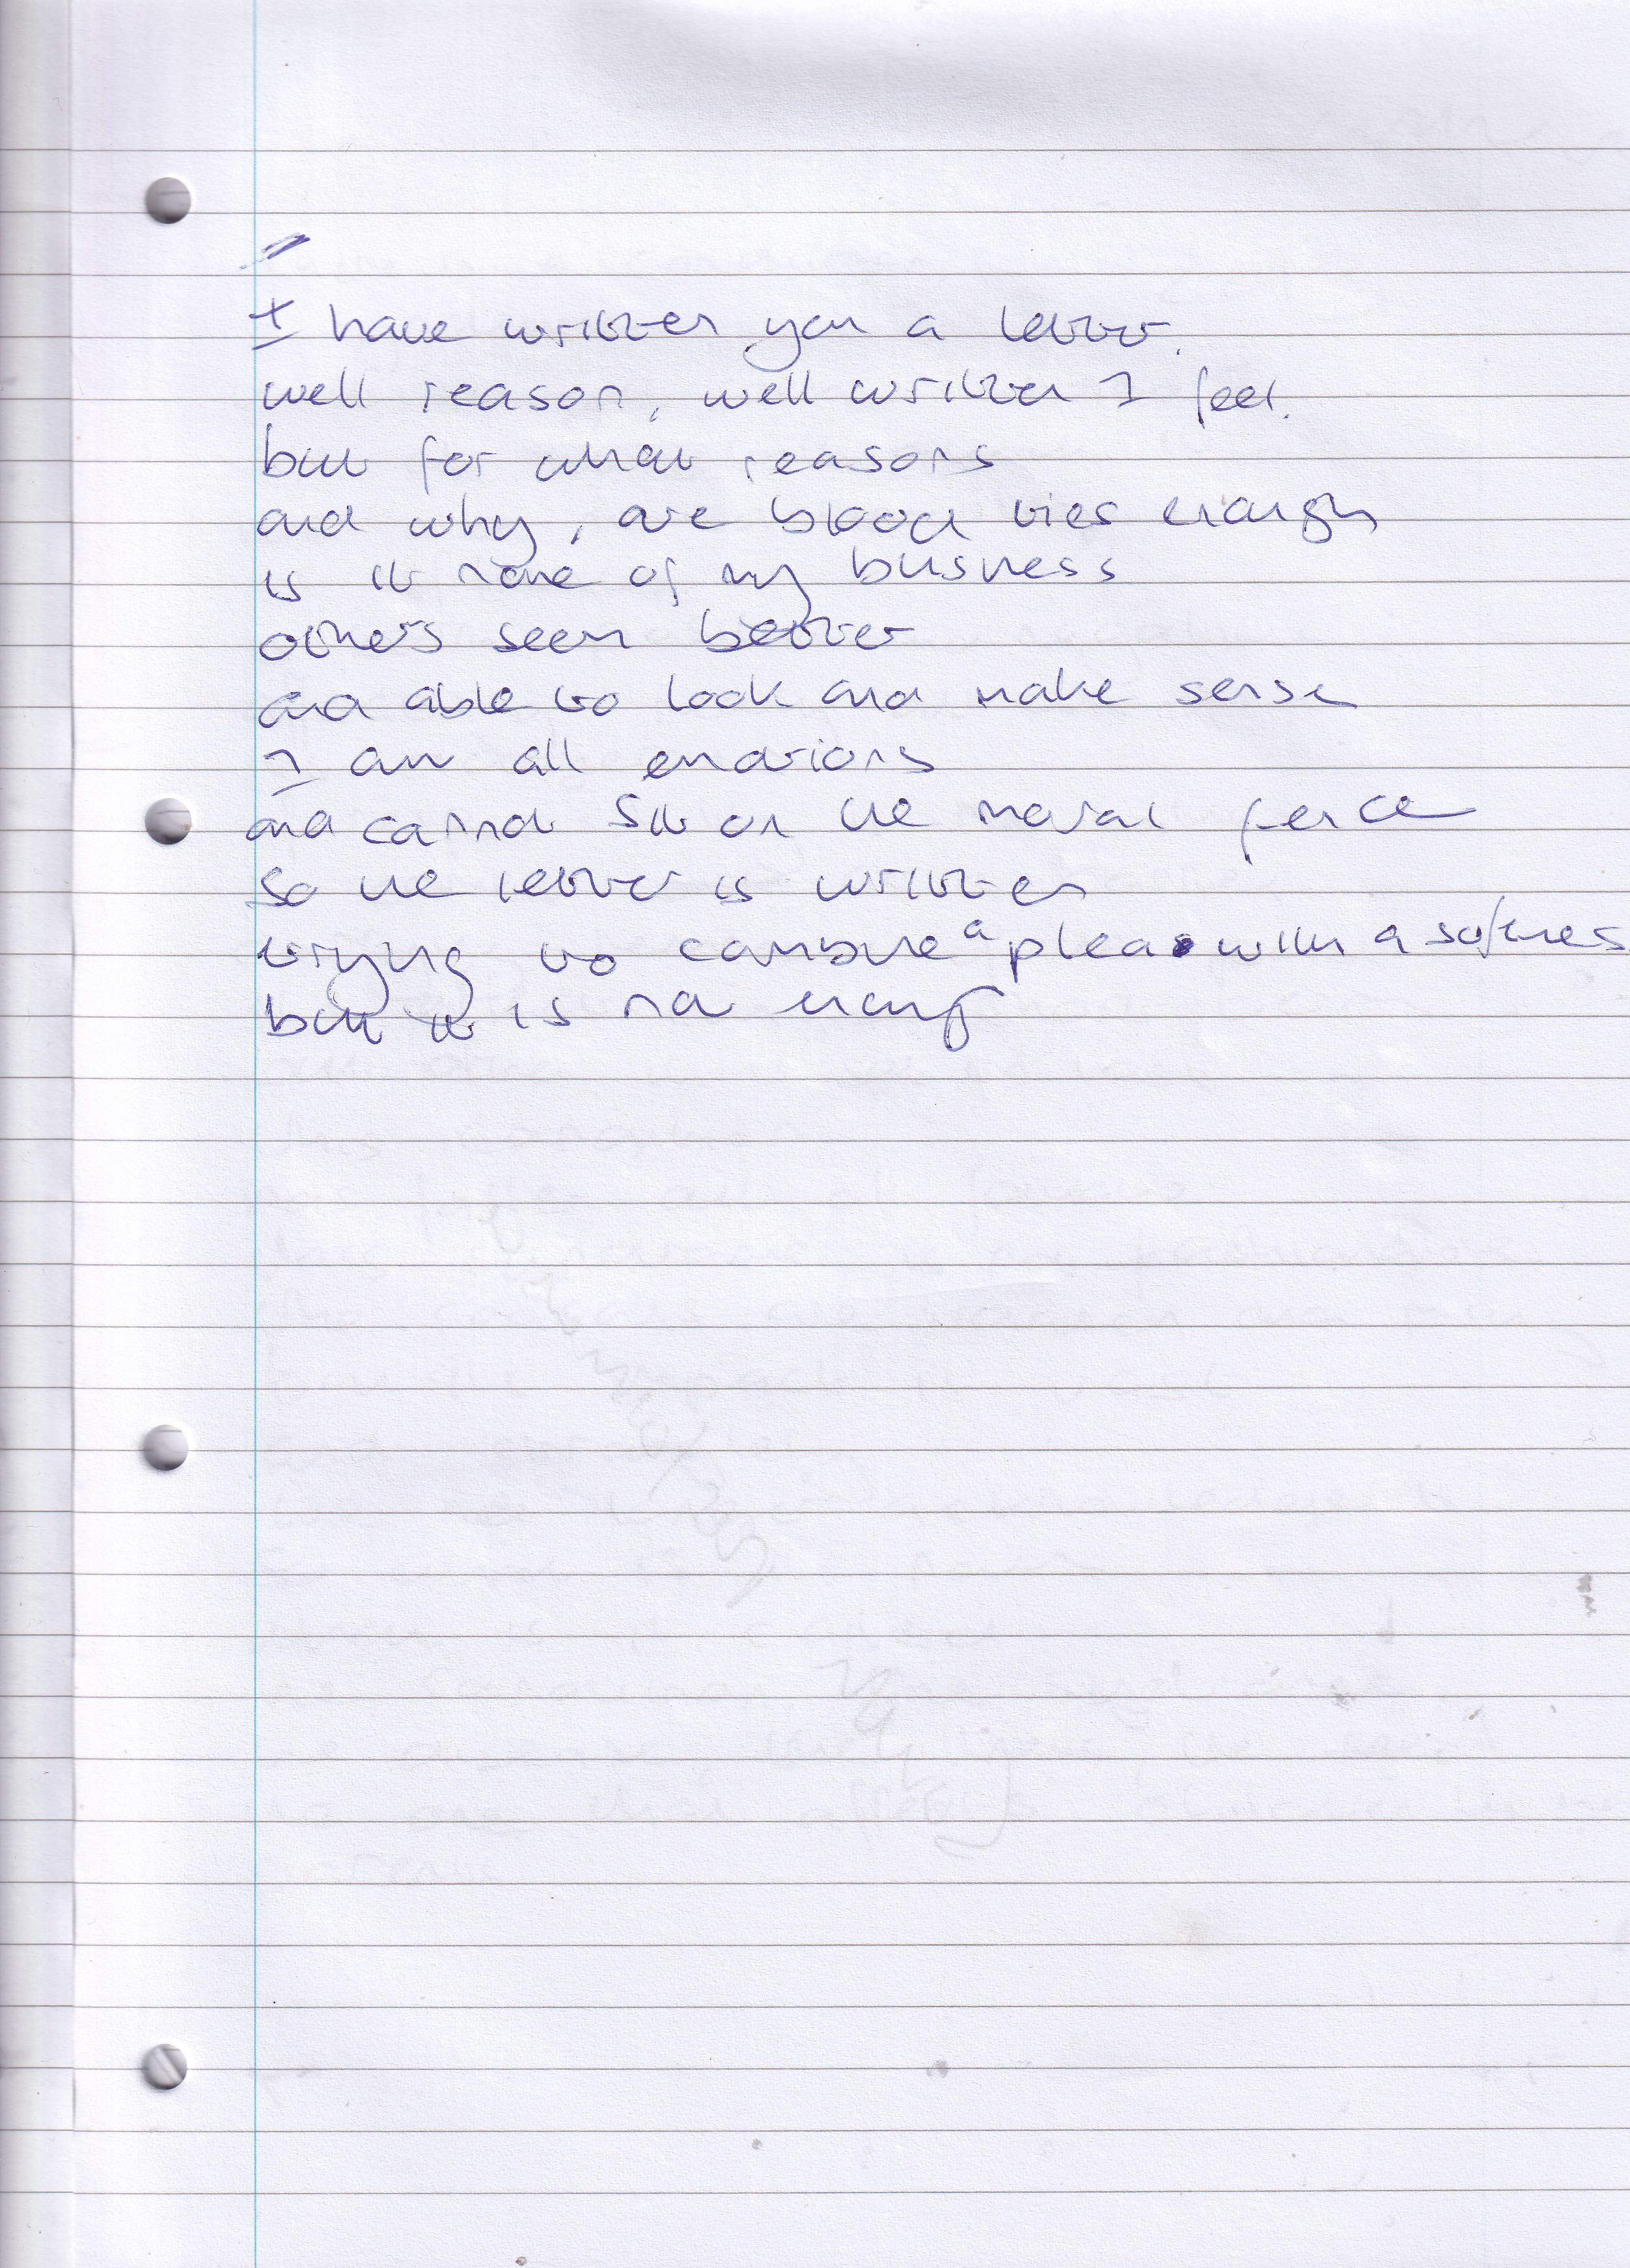 I have written you a letter.
well reason, well written I feel.
but for what reasons
and why, are blood ties enough
is it none of my business
others seem better
and able to look and make sense
I am all emotions
and cannot sit on the moral fence
So the letter is written
trying to combine a plea with a softnes
but it is not enough